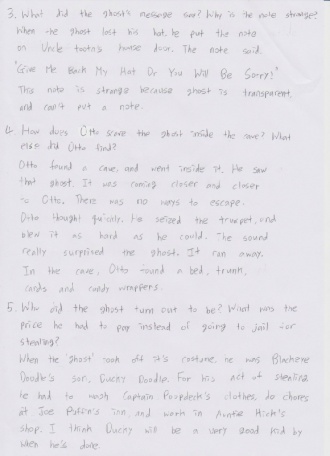 3. What did the ghost's message say? Why is the note strange?
When the ghost lost his hat, he put the note
on Uncle tooth's house door. The note said.
"Give Me Back My Hat Or You Will Be Sorry!"
This note is strange because ghost is transparent
and can't put a note.
4. How does Otto scare the ghost inside the cave? What
else did Otto find?
Otto found a cave, and went inside it. He saw
that ghost. It was coming closer and closer
to Otto. There was no ways to escape.
Otto thought quickly. He seized the trumpet, and
blew it as hard as he could. The sound
really surprised the ghost. It ran away.
In the cave, Otto found a bed, trunk,
cards and candy wrappers.
5. Who did the ghost turn out to be? What was the
price he had to pay instead of going to jail for
stealing?
When the 'ghost' took off it's costume, he was Blackene
Doodle's son, Ducky Doodle. For his act of stealing
he had to wash Captain Poopdeck's clothes, do chores
at Joe Puffin's inn, and work in Auntie Hick's
shop. I think Ducky will be a very good kid by
when he's done